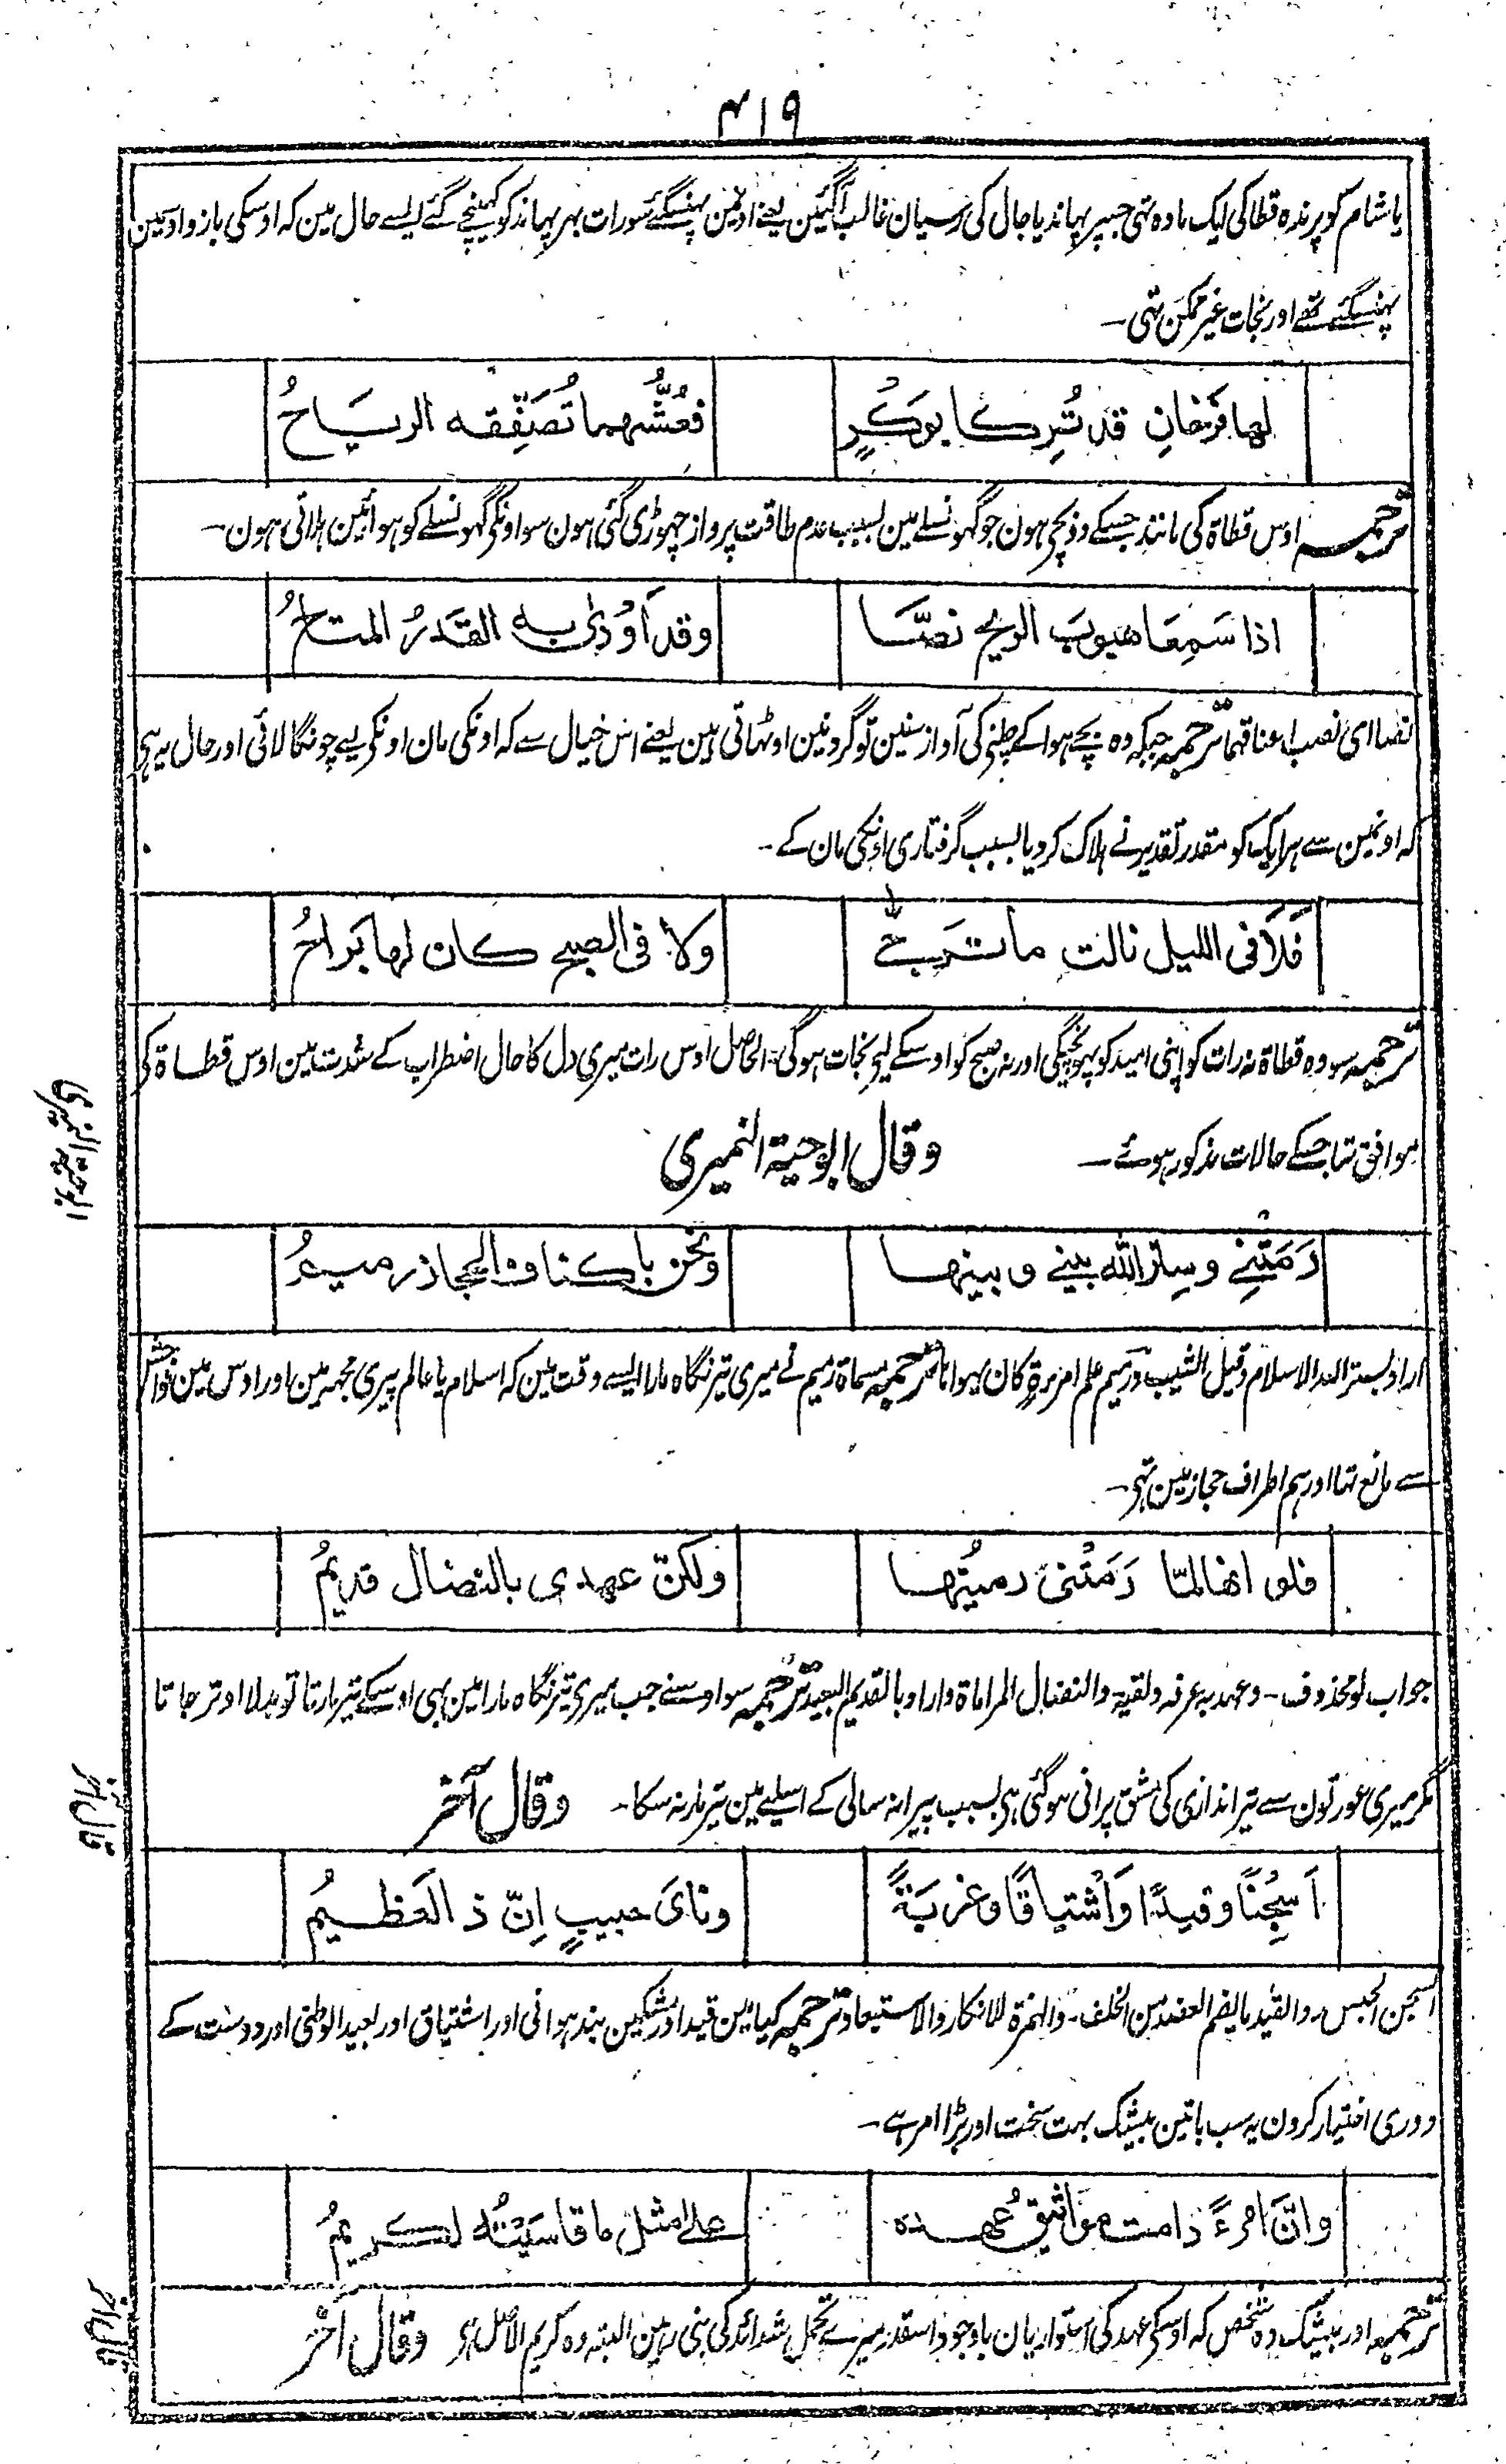 ۴۱۹
یا شام کو پرندہ قطا کی ایک مادہ تہی جسپر پہاندیا جال کی رسیان غالب آگئین یعنے اونمین پہنسگئے سو رات بہر پہاند کو کہینچے گئے ایسے حال مین کہ اوسکی بازو اوسمین
پہنسگئے تہے اور نجات غیر ممکن تہی ۔
لها فَرْخانِ قد تُرِكا بوَكْرٍ فعُشُّهما تُصَفِّقه الرياحُ
ترجمہ اوس قطاۃ کی مانند جسکے دو بچی ہون جو گہونسلے مین بسبب عدم طاقت پرواز چہوڑی گئی ہون سو اونکی گہونسلے کو ہوائین ہلاتی ہون ۔
اذا سَمِعَا هبوبَ الريح نصَّا وقد اَوْدى به القدَرُ المتاحُ
نصا ای نصبا عناقہما ترجمہ جبکہ وہ بچے ہوا کے چلنے کی آواز سنین تو گردنین اوٹہاتی ہین یعنے اس خیال سے کہ اونکی مان اونکی لیے چونگا لائی اور حال یہ ہی
کہ اونمین سے ہر ایک کو مقدر تقدیر نے ہلاک کردیا بسبب گرفتاری اونکی مان کے ۔
فلَا فى الليل نالت ما ترجّى ولا فى الصبح كان لها بَراحُ
ترجمہ سو وہ قطاۃ نہ رات کو اپنی امید کو پہونچیگی اور نہ صبح کو اوسکے لیے نجات ہوگی ۔ الحاصل اوس رات میری دل کا حال اضطراب کے شدت مین اوس قطاۃ کی
موافق تہا جسکے حالات مذکور ہوئے ۔ وقال ابوحیۃ النمیری
رَمَتْنِے وسِترُ الله بینے وبینها ونحن باكناف الحجاز رميمُ
اراد بستر اللہ الاسلام وقیل الشیب ورمیم علم امرءۃ کان یہواہا ترجمہ مسماۃ رمیم نے میری تیر نگاہ مارا ایسے وقت مین کہ اسلام یا عالم پیری مجہمین اور اوس مین فواحش
سے مانع تہا اور ہم اطراف حجاز مین تہی ۔
فلو انها لمّا رَمَتْنى رميتُها ولكنّ عهدى بالنضال قديمُ
جواب لو محذوف ۔ وعہد بہ عرفہ ولقیہ والنضال المراماۃ واراد بالقدیم البعید ترجمہ سو اوسنے جب میری تیر نگاہ مارا مین بہی اوسکے تیر مارتا تو بدلا اوتر جاتا
مگر میری عورتون سے تیر اندازی کی مشق پرانی ہوگئی ہی بسبب پیرانہ سالی کے اسلیے مین تیر مار نہ سکا ۔ وقال آخر
اَسِجْنًا وقيدًا وَاشْتياقًا وغربَةً ونأىَ حبيبٍ اِنّ ذا لعَظيمُ
السجن الحبس ۔ والقید ما یضم العضدین الخلف ۔ والہمزۃ للانکار والاستبعاد ترجمہ کیا مین قید اور مشکین بندہوانی اور اشتیاق اور بعید الوطنی اور دوست کے
دوری اختیار کرون یہ سب باتین بیشک بہت سخت اور بڑا امر ہے ۔
وانَّ امرءً دامت مواثيقُ عهده علے مثل ما قاسَيْتُه لكريمُ
ترجمہ اور بیشک وہ شخص کہ اوسکی عہد کی استواریان باوجود اسقدر میرے تحمل شدائد کی بنی رہین البتہ وہ کریم الاصل ہی وقال آخر